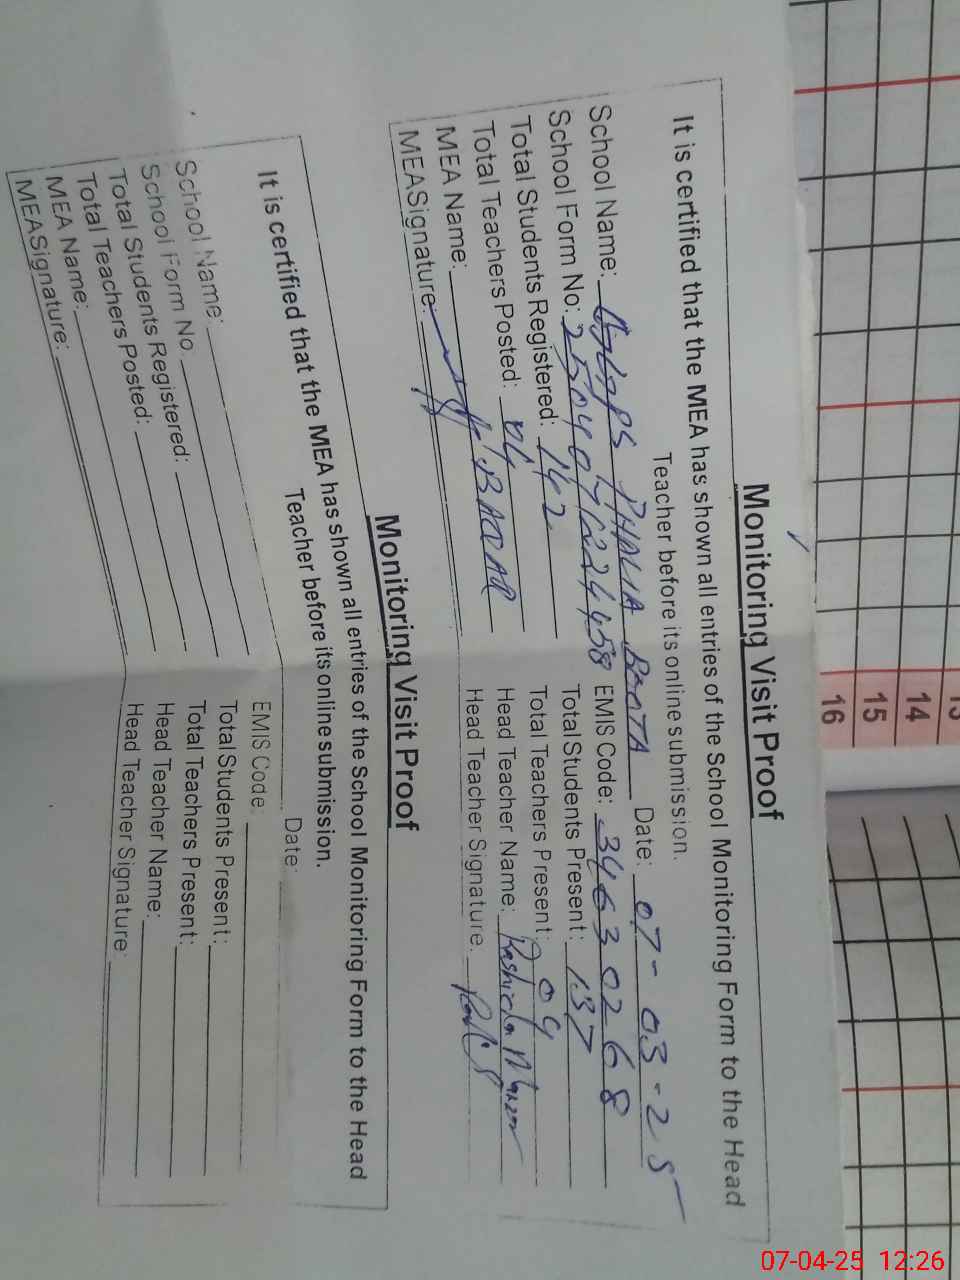 Monitoring Visit Proof
It is certified that the MEA has shown all entries of the School Monitoring Form to the Head
Teacher before its online submission.
School Name: PHALIA Date: 07-03-25
School Form No: EMIS Code: 34630268
Total Students Registered: 142 Total Students Present: 137
Total Teachers Posted: 04 Total Teachers Present: 04
MEA Name: Head Teacher Name: Rashida
MEASignature: Head Teacher Signature:
Monitoring Visit Proof
It is certified that the MEA has shown all entries of the School Monitoring Form to the Head
Teacher before its online submission.
School Name: Date:
School Form No. EMIS Code:
Total Students Registered: Total Students Present:
Total Teachers Posted: Total Teachers Present:
MEA Name: Head Teacher Name:
MEASignature: Head Teacher Signature:
14
15
16
07-04-25 12:26